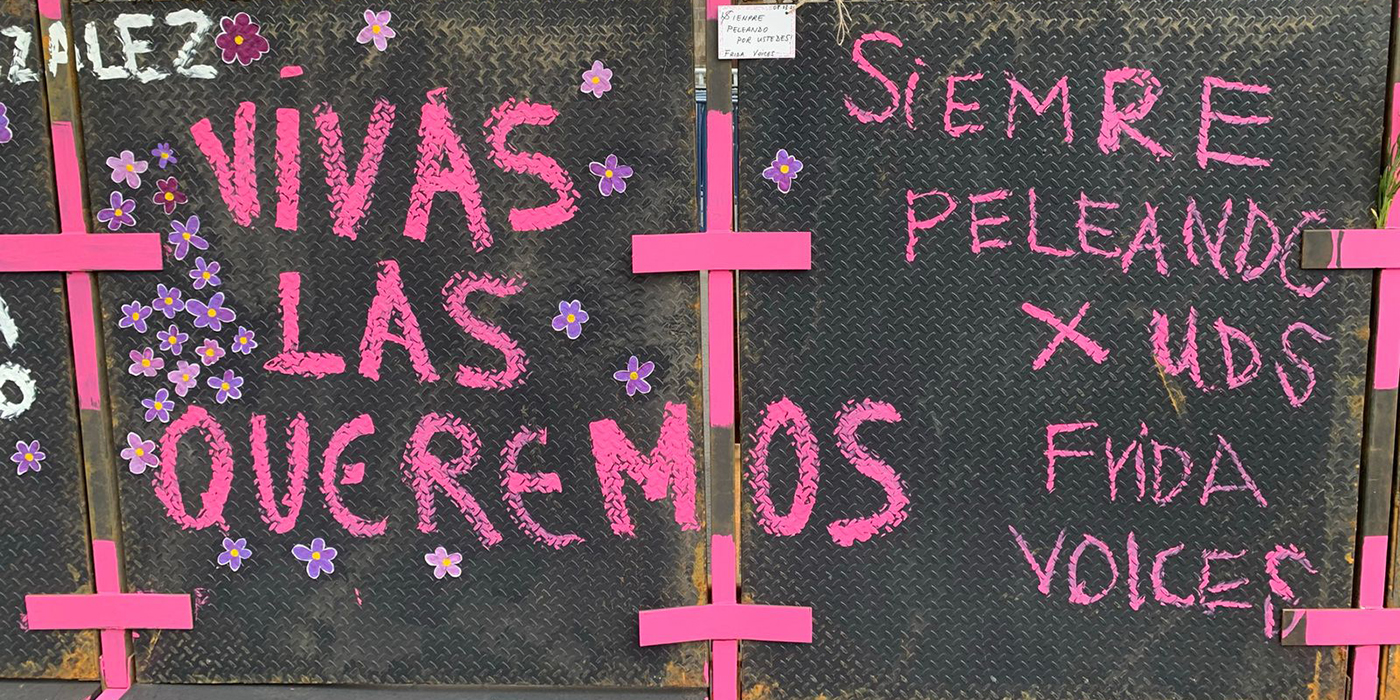 ZALEZ
VIVAS
LAS
QUEREMOS
SIEMPRE
PELEANDO
POR USTEDES!
FRIDA VOICES
SiEMRE
PELEANDO
X UDS
FRiDA
VOICES